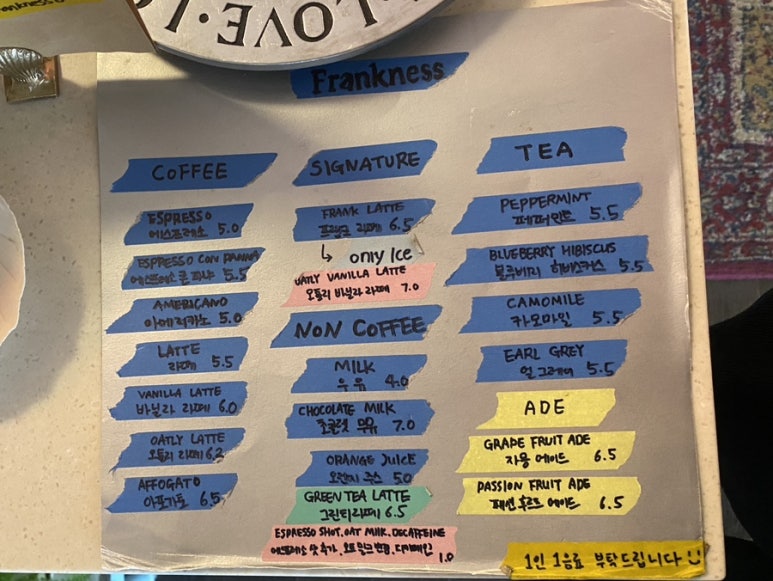 LOVE
Frankness
COFFEE
ESPRESSO
에스프레소 5.0
ESPRESSO CON PANNA
에스프레소 콘 파나 5.5
AMERICANO
아메리카노 5.0
LATTE
라떼 5.5
VANILLA LATTE
바닐라 라떼 6.0
OATLY LATTE
오틀리 라떼 6.2
AFFOGATO
아포가토 6.5
SIGNATURE
FRANK LATTE
프랭크 라떼 6.5
↳ only Ice
OATLY VANILLA LATTE
오틀리 바닐라 라떼 7.0
NON COFFEE
MILK
우유 4.0
CHOCOLATE MILK
초콜렛 우유 7.0
ORANGE JUICE
오렌지 주스 5.0
GREEN TEA LATTE
그린티라떼 6.5
ESPRESSO SHOT, OAT MILK, DECAFFEINE
에스프레소 샷 추가, 오트밀크변경, 디카페인 1.0
TEA
PEPPERMINT
페퍼민트 5.5
BLUEBERRY HIBISCUS
블루베리 히비스커스 5.5
CAMOMILE
카모마일 5.5
EARL GREY
얼 그레이 5.5
ADE
GRAPE FRUIT ADE
자몽 에이드 6.5
PASSION FRUIT ADE
패션 후르츠 에이드 6.5
1인 1음료 부탁드립니다